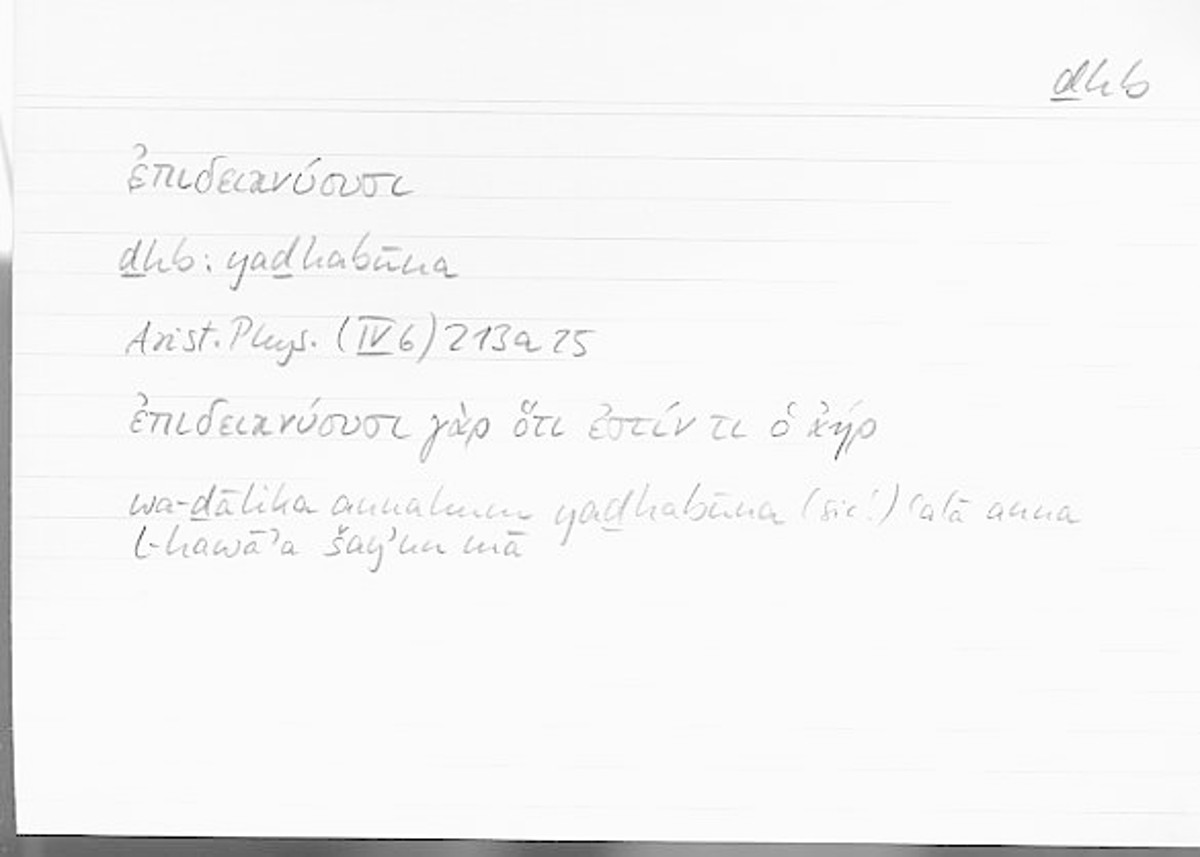 ḏhb
ἐπιδεικνύουσι
ḏhb: yaḏhabūna
Arist. Phys. (IV 6) 213a25
ἐπιδεικνύουσι γὰρ ὅτι ἐστίν τι ὁ ἀήρ
wa-ḏālika annahum yaḏhabūna (sic!) ʿalā anna
l-hawāʾa šayʾun mā